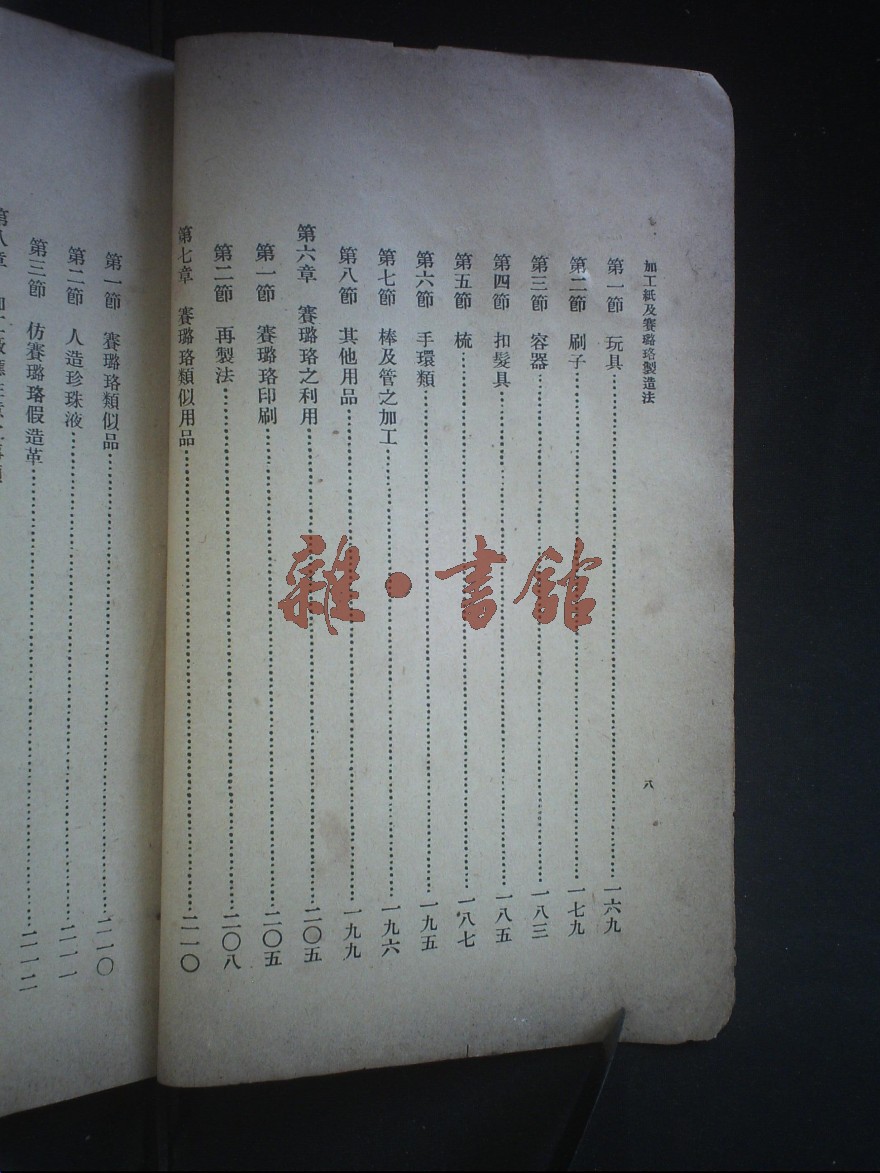 加工紙及賽璐珞製造法
八
第一節 玩具……一六九
第二節 刷子……一七九
第三節 容器……一八三
第四節 扣髮具……一八五
第五節 梳……一八七
第六節 手環類……一九五
第七節 棒及管之加工……一九六
第八節 其他用品……一九九
第六章 賽璐珞之利用……二〇五
第一節 賽璐珞印刷……二〇五
第二節 再製法……二〇八
第七章 賽璐珞類似用品……二一〇
第一節 賽璐珞類似品……二一〇
第二節 人造珍珠液……二一一
第三節 仿賽璐珞假造革……二一二
第八章
雜·書館